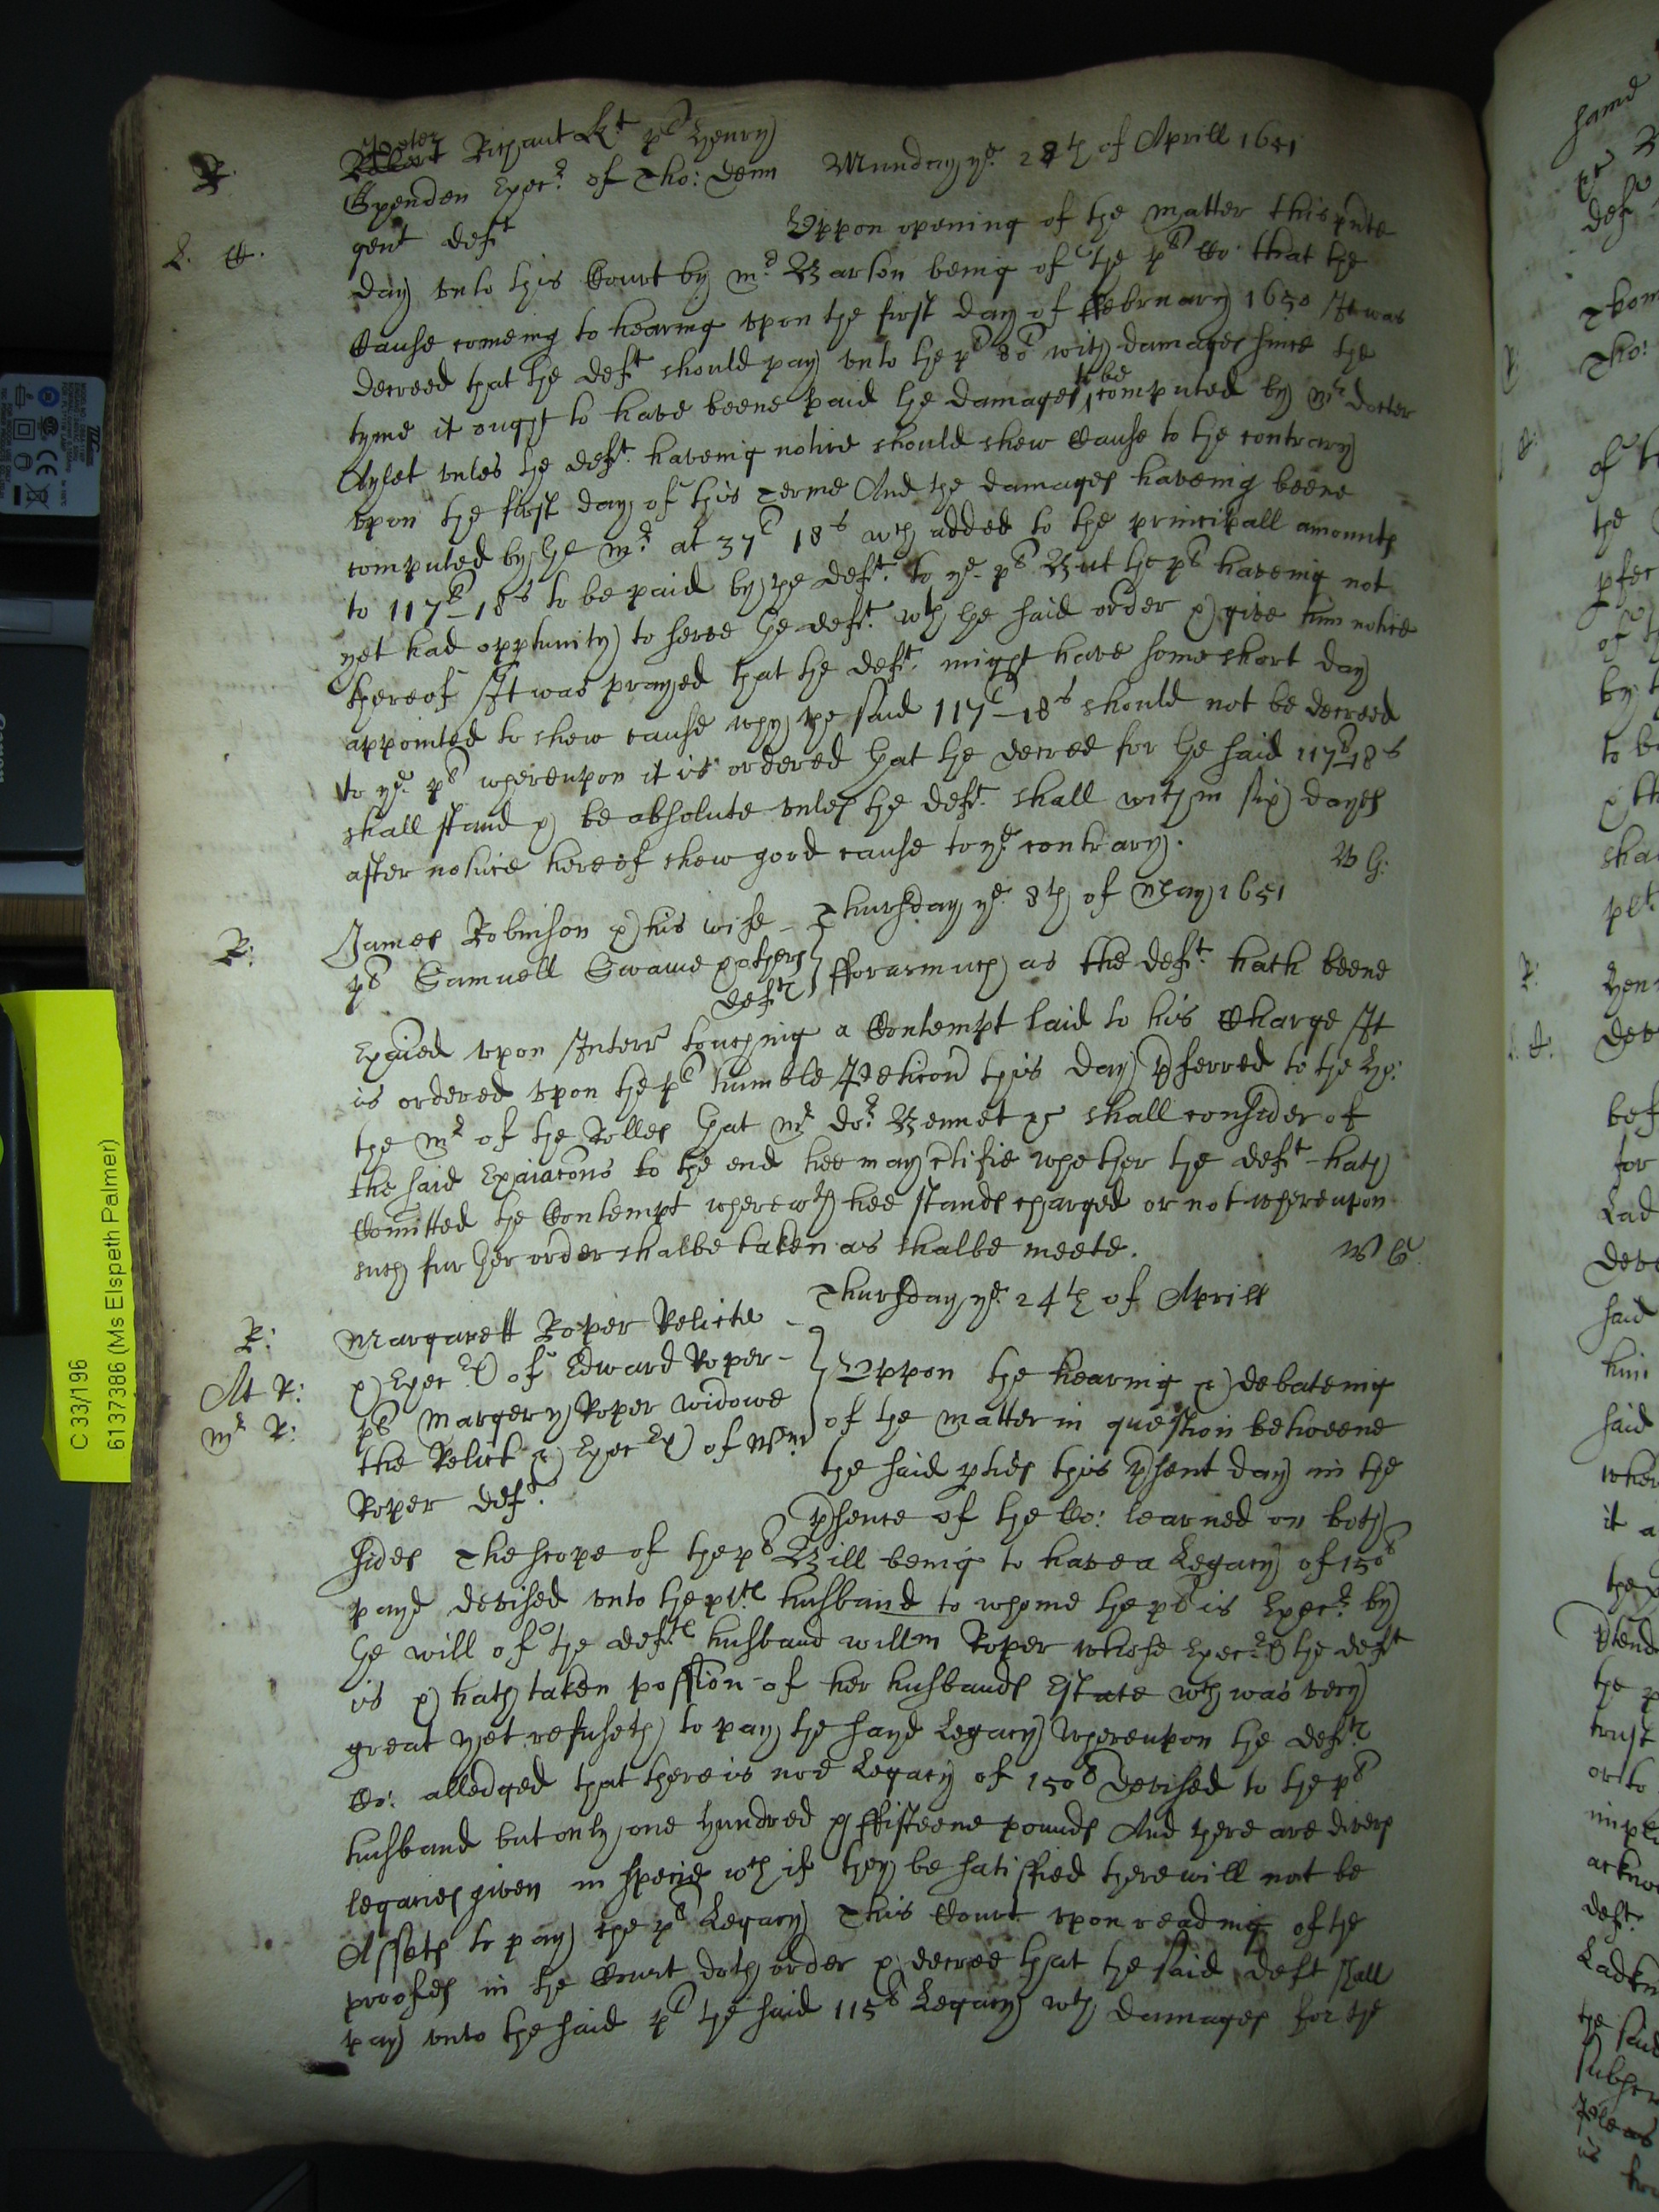 R.
Peeter Ricaut Kt pl Henry
Spenden Execr of Tho: Denn
gent deft
Munday ye 28th of Aprill 1651
L. C.
Uppon opening of the matter this pnte
day unto this Court by mr Barton being of the pl Co: that the
Cause comeing to hearing upon the first day of ffebruary 1650 It was
decreed that the deft should pay unto the pl 80l with damages since the
tyme it ought to have beene paid the damages to be computed by mr docter
Aylet unles the deft haveing notice should shew Cause to the contrary
upon the first day of this Terme And the damages haveing beene
computed by the mr at 37l 18s wch added to the principall amounts
to 117l–18s to be paid by the deft to ye pl But the pl haveing not
yet had opptunity to serve the deft wth the said order & give him notice
thereof It was prayed that the deft might have some short day
appointed to shew cause why the said 117l–18s should not be decreed
to ye pl whereupon it is ordered that the decree for the said 117l–18s
shall stand & be absolute unles the deft shall within six dayes
after notice hereof shew good cause to ye contrary.
R:
James Robinson & his wife
pl Samuell Swame & others
defts
Thursday ye 8th of May 1651
fforasmuch as the deft hath beene
Exaied upon Interr touching a Contempt laid to his Charge It
is ordered upon the pl humble Peticon this day pferred to the Ho:
the mr of the Rolles that mr dor Bennet &c shall consider of
the said Exaiacons to the end hee may ctifie whether the deft hath
Comitted the Contempt wherewth hee stands charged or not whereupon
such further order shalbe taken as shalbe meete.
R:
At R:
mr R:
Margarett Roper Relicte
& Execr of Edward Roper
pl Margery Roper widowe
the Relict & Execr of Wm
Roper deft
Thursday ye 24th of Aprill
Uppon the hearing & debateing
of the matter in question betweene
the said pties this psent day in the
psence of the Co: learned on both
sides The scope of the pl Bill being to have a Legacy of 150l
payd devised unto the plts husband to whome the pl is Execr by
the will of the defts husband willm Roper whose Execr the deft
is & hath taken possion of her husbands Estate wch was very
great yet refuseth to pay the sayd Legacy Whereupon the defts
Co: alledged that there is noe Legacy of 150l devised to the pl
husband but only one hundred & ffifteene pounds And there are divers
legacies given in specie wch if they be satisfied there will not be
Assets to pay the pl Legacy This Court upon reading of the
proofes in the Court doth order & decree that the said deft shall
pay unto the said pl the said 115l Legacy wth damages for the
C 33/196
6137386 (Ms Elspeth Palmer)